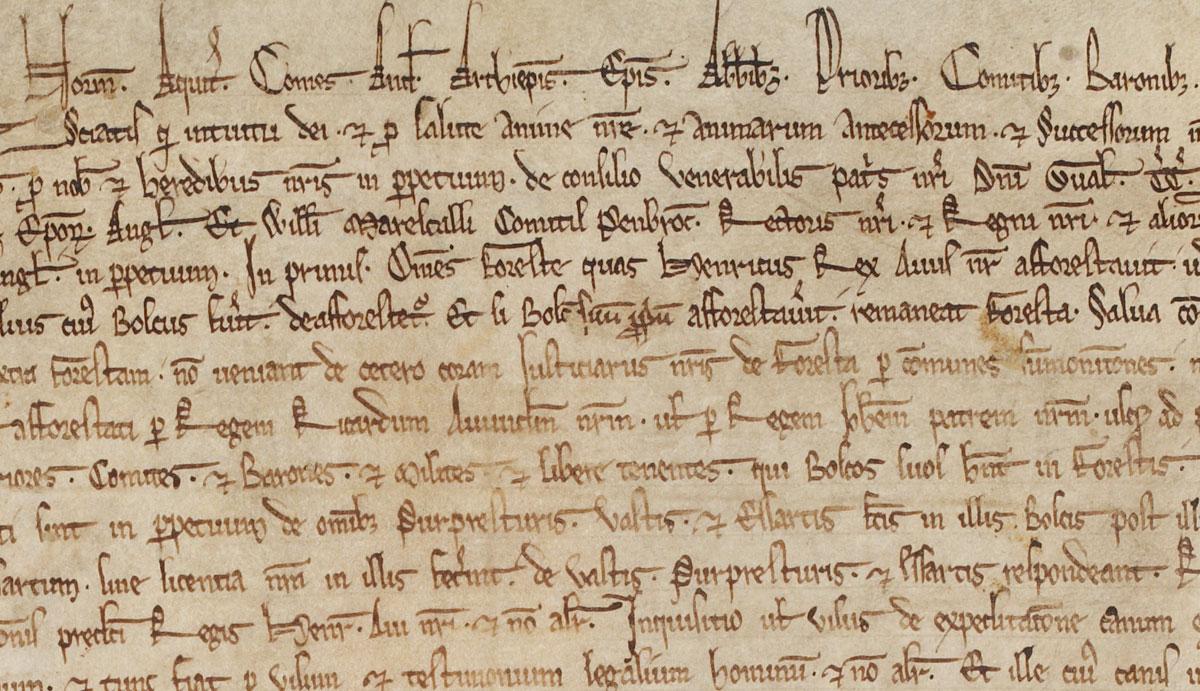 Norm̄. Aquit̄. Comes And̄. Archiep̄is. Ep̄is. Abb̄ibꝫ. Prioribꝫ. Comitibꝫ. Baronibꝫ.
Sciatis qđ intuitu dei ⁊ ꝑ salute anime nr̄e ⁊ animarum antecessorum ⁊ Successorum
ꝑ nob̄ ⁊ heredibus nr̄is in ꝑpetuum. de consilio venerabilis pat̄s nr̄i Dn̄i Gual̄.
Ep̄oꝝ. Angl̄. Et Will̄i Marescalli Comitis Penbroc̄. Rectoris nr̄i. ⁊ Regni nr̄i. ⁊ alior
ngl̄. in ꝑpetuum. In primis. Om̄es foreste quas Henricus Rex Avus nr̄ afforestavit.
lius cui᷒ Boscus fu̾it. deafforestet᷑. Et si Bosc̄ suū ꝓp̄ū afforestav̾it. remaneat foresta. Salva cō
extra forestam. nō veniant de cetero coram Iusticiariis nr̄is de foresta ꝑ cōmunes sūmonitiones.
afforestati ꝑ Regem Ricardum Avunclm̄ nr̄m. vl̄ ꝑ Regem Ioh̄em patrem nr̄m. usqꝫ ad
riores. Comites. ⁊ Barones. ⁊ Milites ⁊ libere tenentes. qui Boscos suos hn̄t in forestis.
ti sunt in ꝑpetuum de om̄ibꝫ Purpresturis. Vastis. ⁊ Essartis fc̄is in illis Boscis post ill
sartum. sine licentia nr̄a in illis fec̾int. de Vastis. Purpresturis. ⁊ Essartis respondeant.
onis predc̄i Regis Henr̄. Avi nr̄i. ⁊ nō alr̄. Inquisitio vl̄ visus de expeditatōne canum
⁊ tunc fiat ꝑ visum ⁊ testimonium legalium hominū. ⁊ nō alr̄. Et ille cui᷒ canis